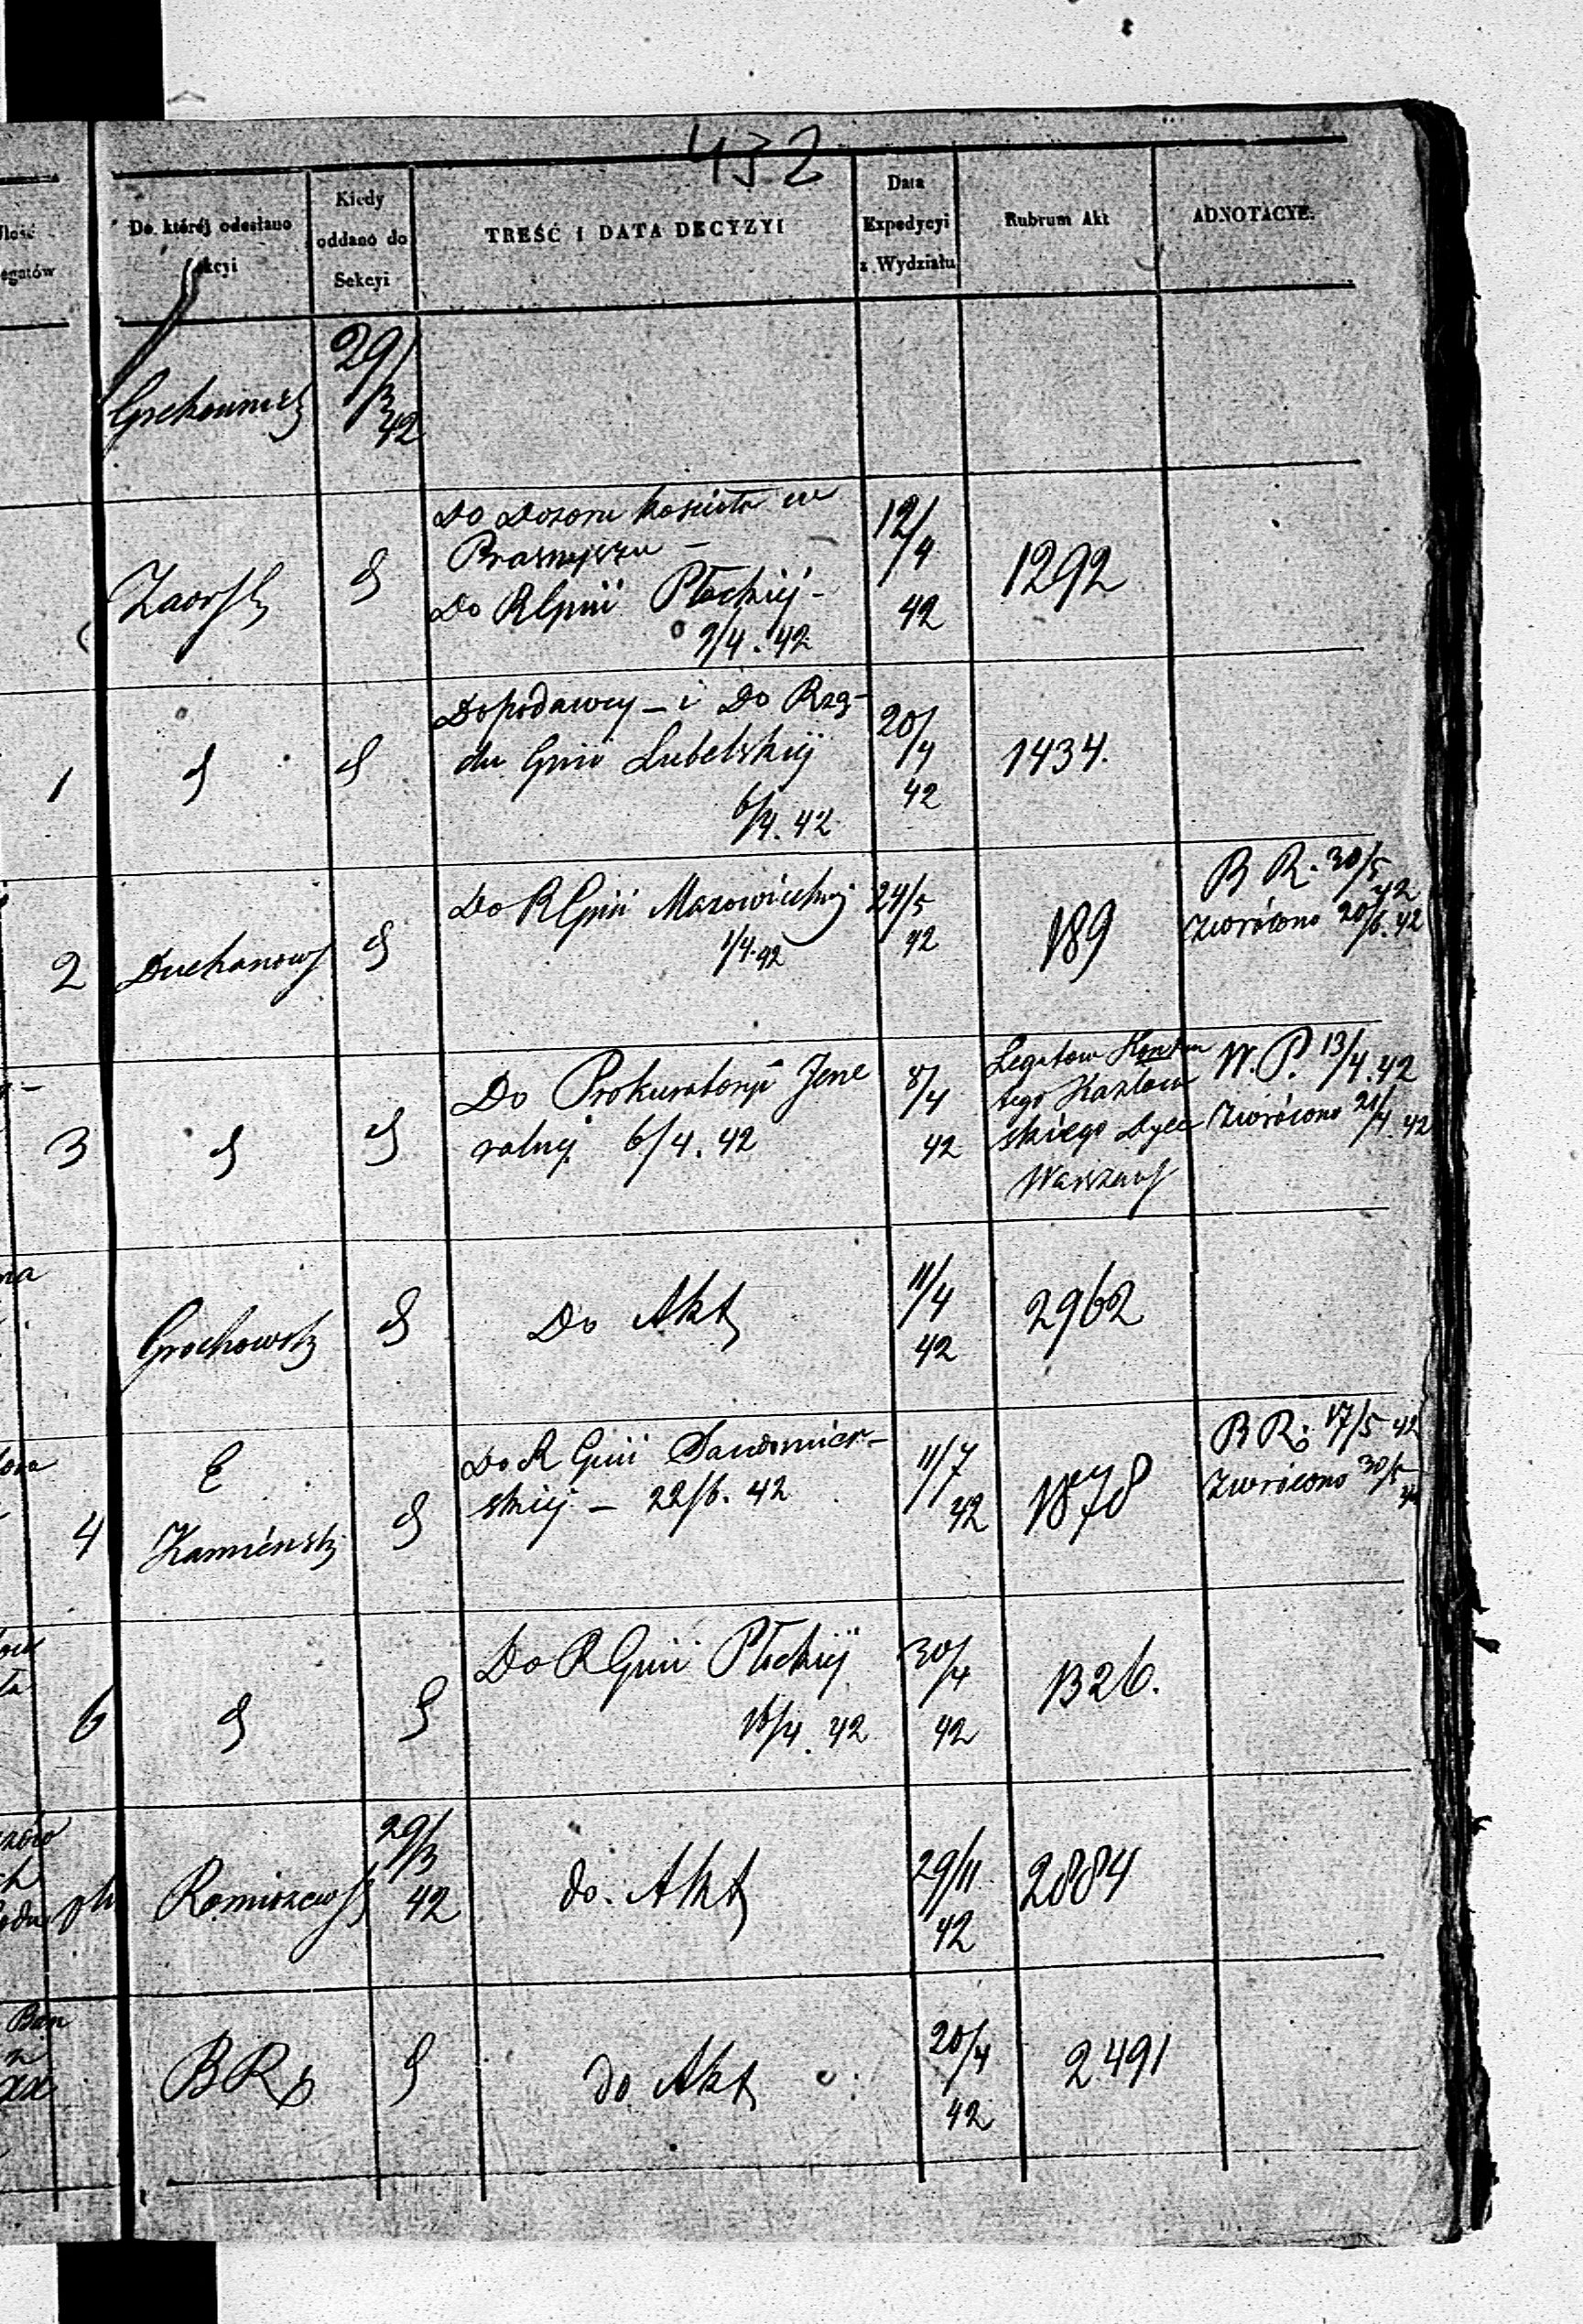 432
Ilość
egatów
Do której odesłano
Sekcyi
Kiedy
oddano do
Sekcyi
TREŚĆ I DATA DECYZYI
Data
Expedycyi
z Wydziału
Rubrum Akt
ADNOTACYE.
29/3
42
Do Dozoru kościoła w
Do RGnii Płockiej -
2/4. 42
12/4
42
1292
1
Do podawcy - i Do Rzą-
du Gnii Lubelskiej
6/4. 42
20/4
42
1434.
2
Duchanows
Do RGnii Mazowieckiej
1/4. 42
24/5
42
189
B R. 30/5
42
Zwrócono 20/6. 42
3
Do Prokuratoryi Jene
ralnej. 6/4. 42
8/4
42
Legatow
tego Kozłow
skiego Dyec
Warszaws
W. P. 13/4. 42
Zwrócono 21/4. 42
Grochowski
Do Akt
11/4
42
2962
4
E
Kamiénski
Do R Gnii Sandomier-
skiej - 22/6. 42
11/7
42
1878
B R. 17/5 42
Zwrócono 30/5
42
6
Do R Gnii Płockiej
16/4. 42
30/4
42
1326.
Romiszews
29/3
42
do Akt
29/11
42
2884
B R
do Akt
20/4
42
2491